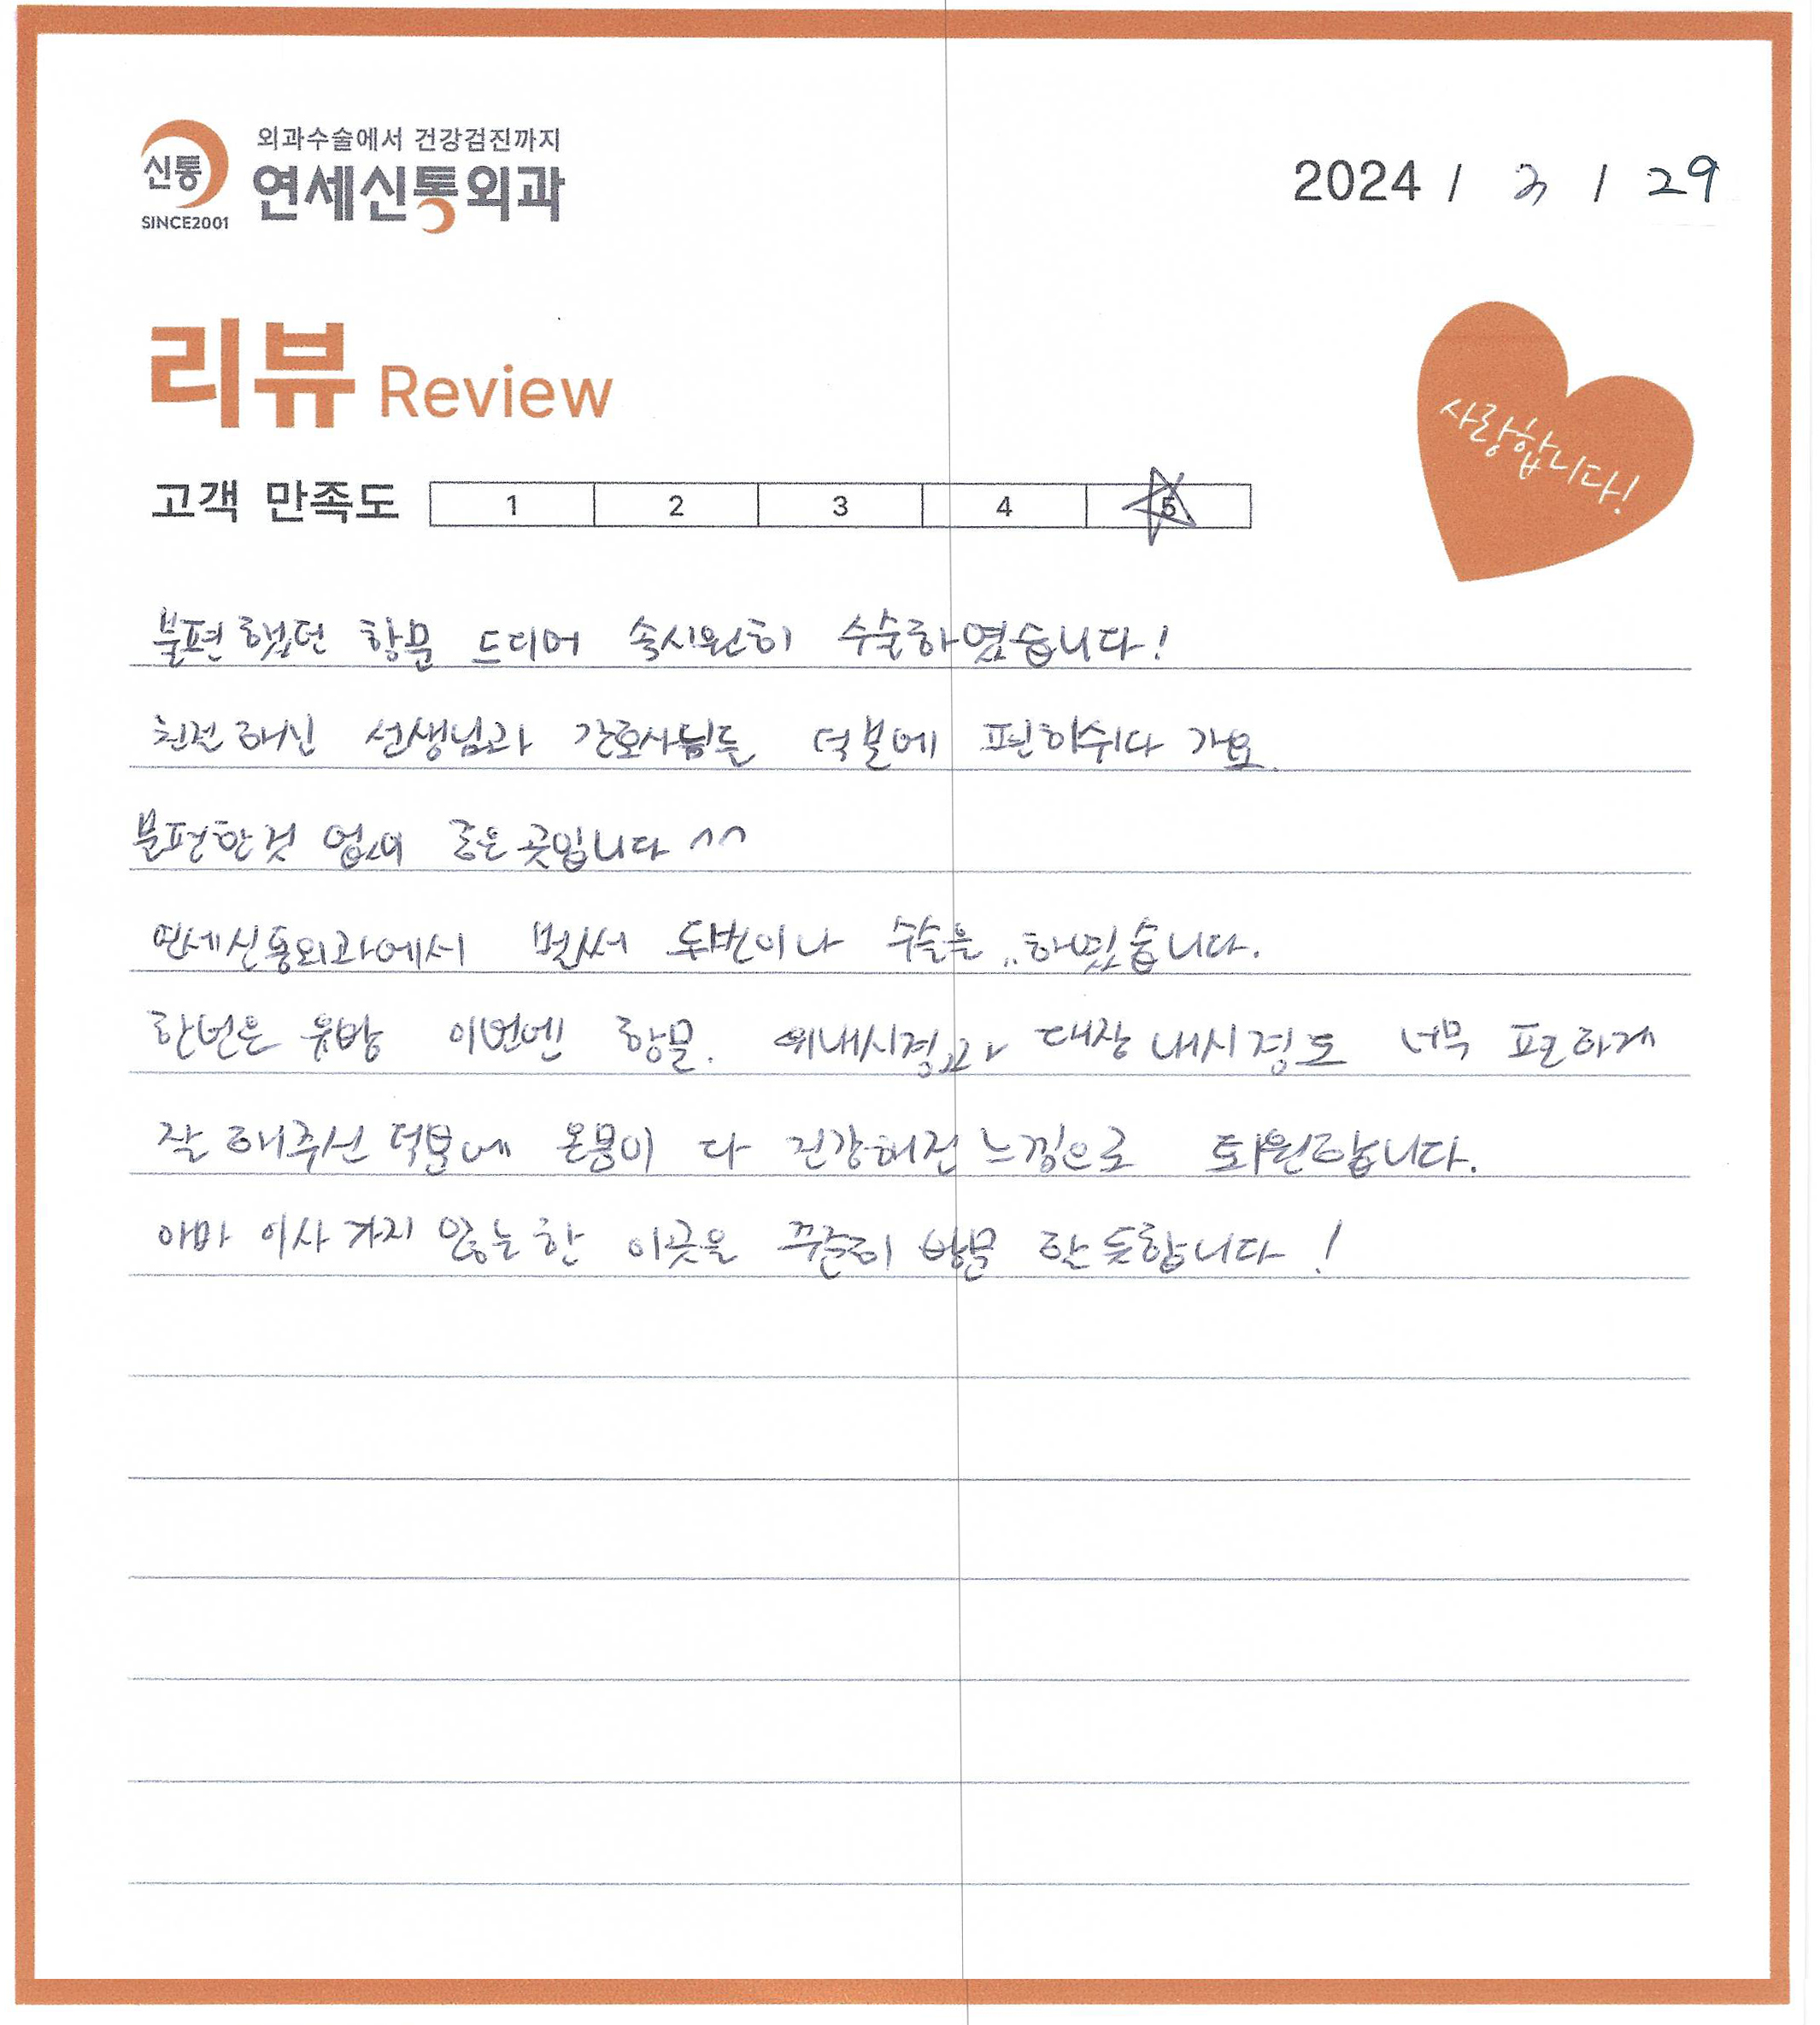 외과수술에서 건강검진까지
신통
연세신통외과
SINCE2001
2024 / 3 / 29
리뷰 Review
사랑합니다!
고객 만족도 1 2 3 4 5
불편했던 항문 드디어 속시원히 수술하였습니다!
친절하신 선생님과 간호사님들 덕분에 편히쉬다 가요.
불편한것 없이 좋은곳입니다 ^^
연세신통외과에서 벌써 두번이나 수술을.. 하였습니다.
한번은 유방 이번엔 항문. 위내시경과 대장 내시경도 너무 편하게
잘 해주신 덕분에 온몸이 다 건강해진 느낌으로 퇴원합니다.
아마 이사 가지 않는 한 이곳을 꾸준히 방문 할 듯합니다!